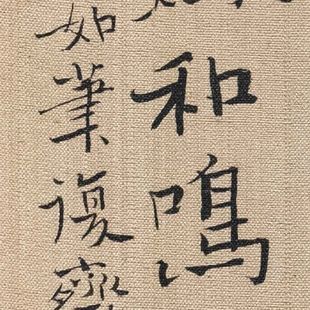 和鳴
如筆復